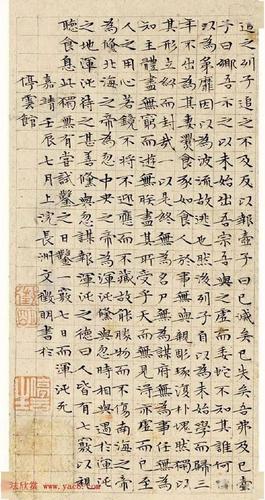 追之列子追之不及反以報壺子曰已滅矣已失矣吾弗及已壺
子曰鄉吾示之以未始出吾宗吾與之虛而委蛇不知其誰何因
以為弟靡因以為波流故逃也然後列子自以為未始學而歸三
年不出為其妻爨食豕如食人於事無與親彫琢復朴塊然獨以
其形立紛而封哉一以是終無為名尸無為謀府無為事任無為
知主體盡無窮而遊無朕盡其所受乎天而無見得亦虛而已至
人之用心若鏡不將不迎應而不藏故能勝物而不傷南海之帝
為儵北海之帝為忽中央之帝為渾沌儵與忽時相與遇於渾沌
之地渾沌待之甚善儵與忽謀報渾沌之德曰人皆有七竅以視
聽食息此獨無有嘗試鑿之日鑿一竅七日而渾沌死
嘉靖壬辰七月上浣長洲文徵明書於
停雲館